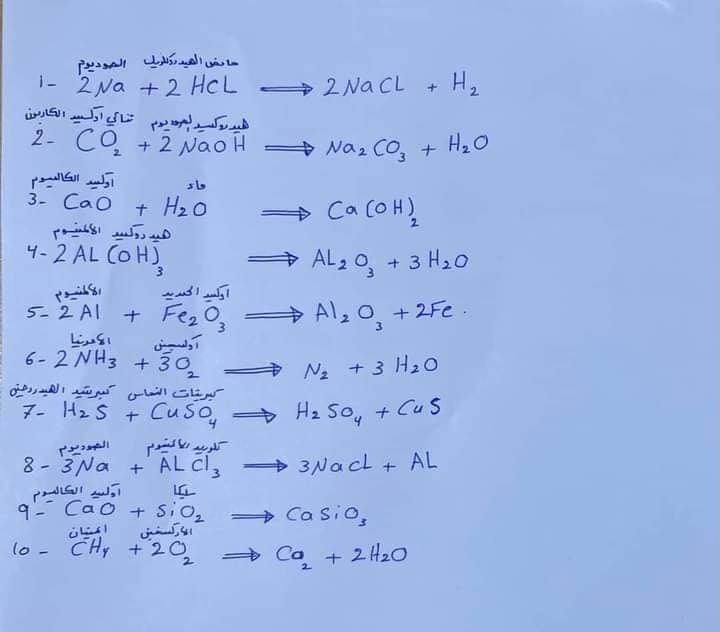 الصوديوم حامض الهيدروكلوريك
1- 2Na + 2HCL ⟹ 2NaCL + H₂
ثنائي اوكسيد الكاربون هيدروكسيد الصوديوم
2- CO₂ + 2NaOH ⟹ Na₂CO₃ + H₂O
اوكسيد الكالسيوم ماء
3- CaO + H₂O ⟹ Ca(OH)₂
هيدروكسيد الالمنيوم
4- 2AL(OH)₃ ⟹ AL₂O₃ + 3H₂O
الالمنيوم اوكسيد الحديد
5- 2Al + Fe₂O₃ ⟹ Al₂O₃ + 2Fe.
الامونيا اوكسجين
6- 2NH₃ + 3O₂ ⟹ N₂ + 3H₂O
كبريتيد الهيدروجين كبريتات النحاس
7- H₂S + CuSO₄ ⟹ H₂SO₄ + CuS
الصوديوم كلوريد الالمنيوم
8- 3Na + ALCl₃ ⟹ 3NaCL + AL
اوكسيد الكالسيوم سليكا
9- CaO + SiO₂ ⟹ CaSiO₃
الميثان الاوكسجين
10- CH₄ + 2O₂ ⟹ Ca₂ + 2H₂O